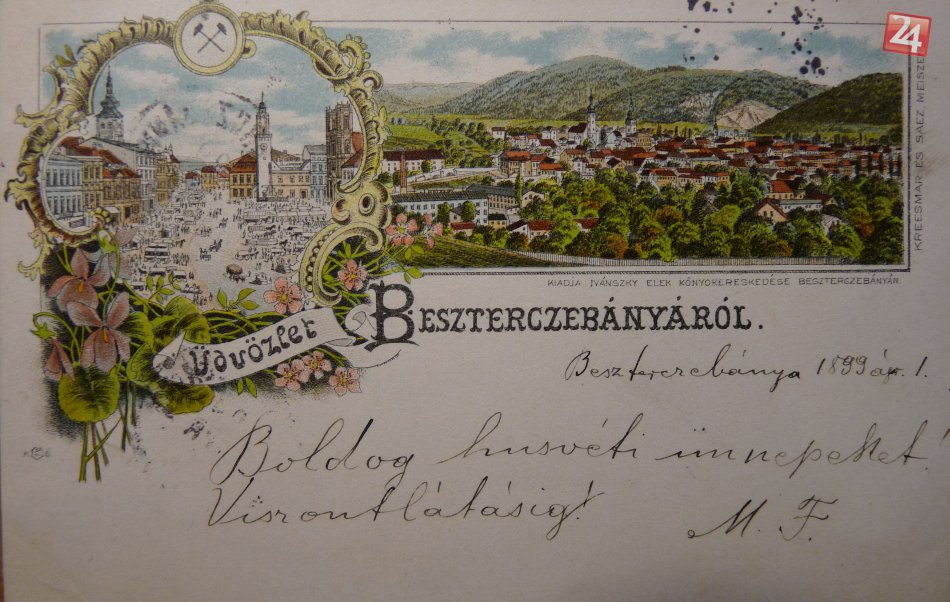 24
KREESMÁR ÉS SAEZ, MEISZE
KIADJA IVÁNSZKY ELEK KÖNYOKERESKEDÉSE BESZTERCZEBÁNYÁN.
Üdvözlet
BESZTERCZEBÁNYÁRÓL.
Beszterczebánya 1899 ápr. 1.
Boldog husvéti ünnepeket!
Viszontlátásig!
M. F.